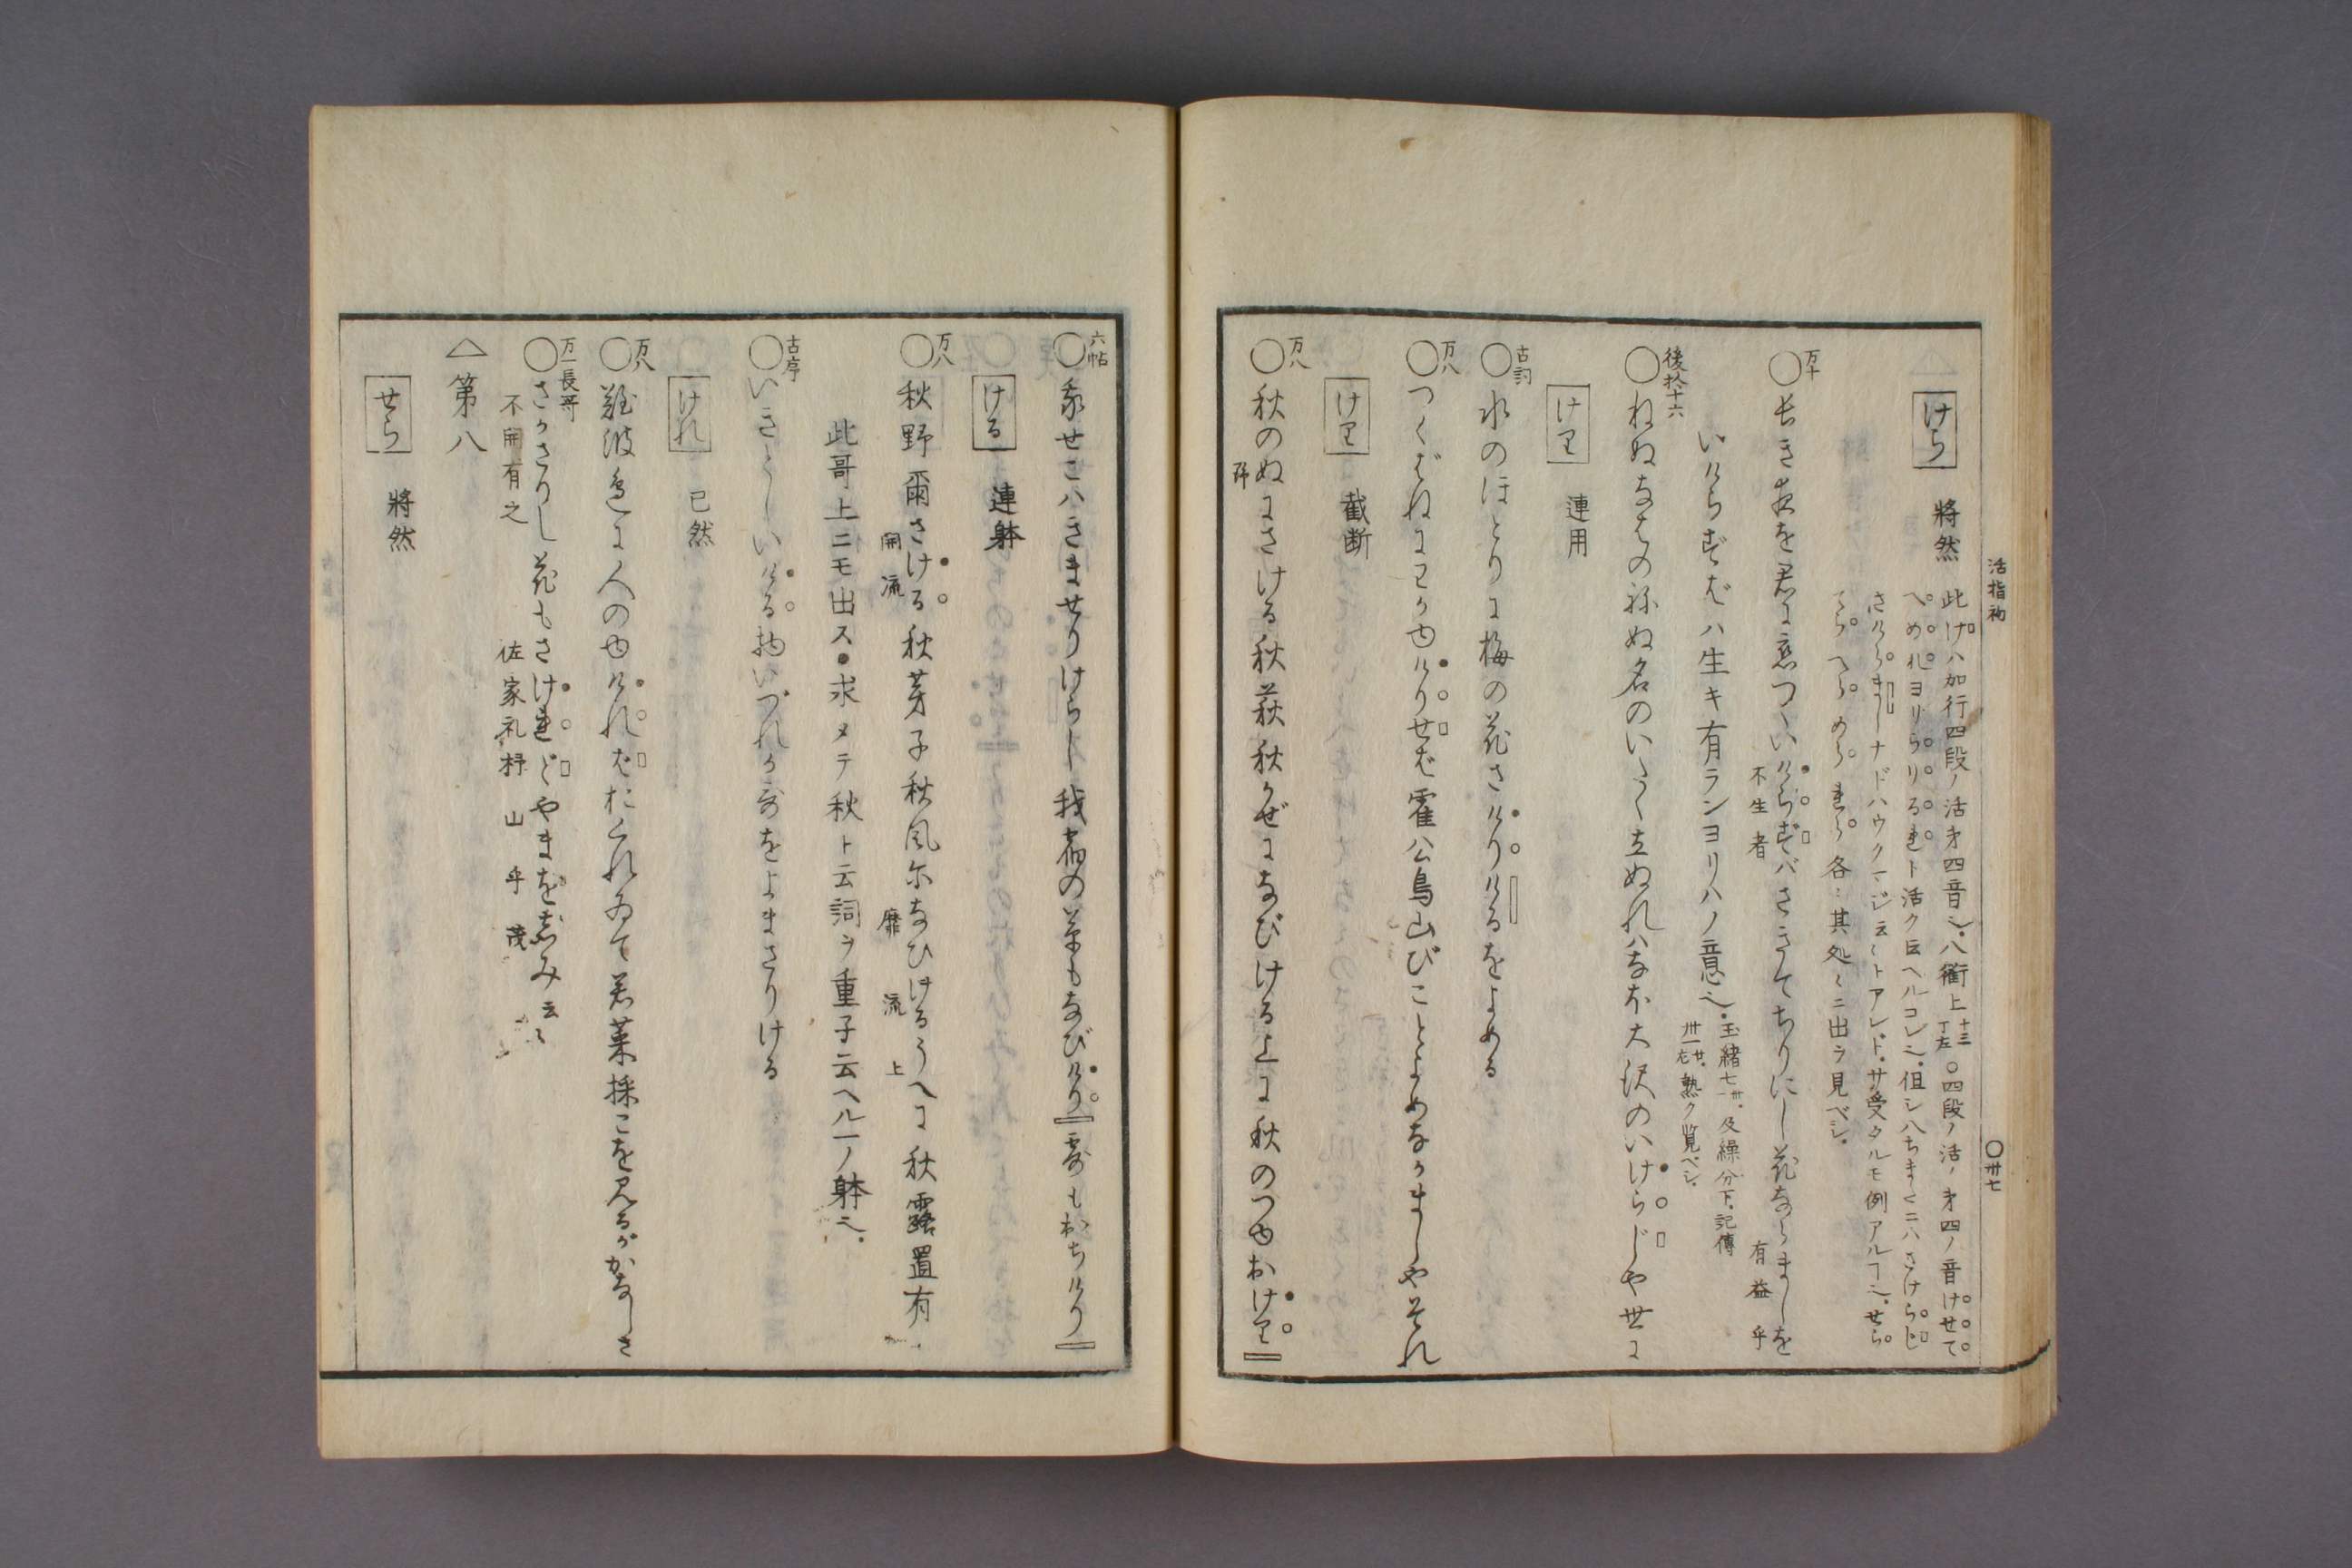 活指初 〇卅七
けら 將然
此けハ加行四段ノ活才四音也・八衢上十三丁左〇四段ノ活ノ才四ノ音けせて
へめれヨリらりるれト活ク云ヘルコレ也・但シハちまたニハさけらじ
さけらましナドハウクマジ云々トアレド・サ受タルモ例アルヿ也・せら
てらへらめられら各〻其処々ニ出ヲ見ベシ・
万十
〇長き夜を君に恋つゝいけらずバさきてちりにし花ならましを
不生者 有益乎
いけらずばハ生キ有ランヨリハノ意也・玉緒七卅一・及繰分下・記傳卅一廿左・熟ク覧ベシ・
後拾十六
〇ねぬなはの祢ぬ名のいたく立ぬれハなほ大沢のいけらじや世に
けり 連用
古詞
〇水のほとりに梅の花さけりけるをよめる
万八
〇つくばねにわかゆけりせば霍公鳥山びことよめなかましやそれ
けり 截断
万八
〇秋のぬにさける秋萩秋かぜになびける上に秋のつゆおけり
六帖
〇我せこハきませりけらし我宿の草もなびけり露もおちけり
ける 連躰
万八
〇秋野爾さける秋芽子秋風尓なひけるうへに秋露置有
開流 靡流 上
此哥上ニモ出ス・求メテ秋ト云詞ヲ重子云ヘル一ノ躰也・
古序
〇いきとしいける物いづれか哥をよまさりける
けれ 已然
万八
〇難波邊に人のゆければおくれゐて若菜採こを見るがかなしさ
万一長哥
〇さかさりし花もさけれどやまをしみ云々
不開有之 佐家礼杼 山乎茂
△第八
せら 將然